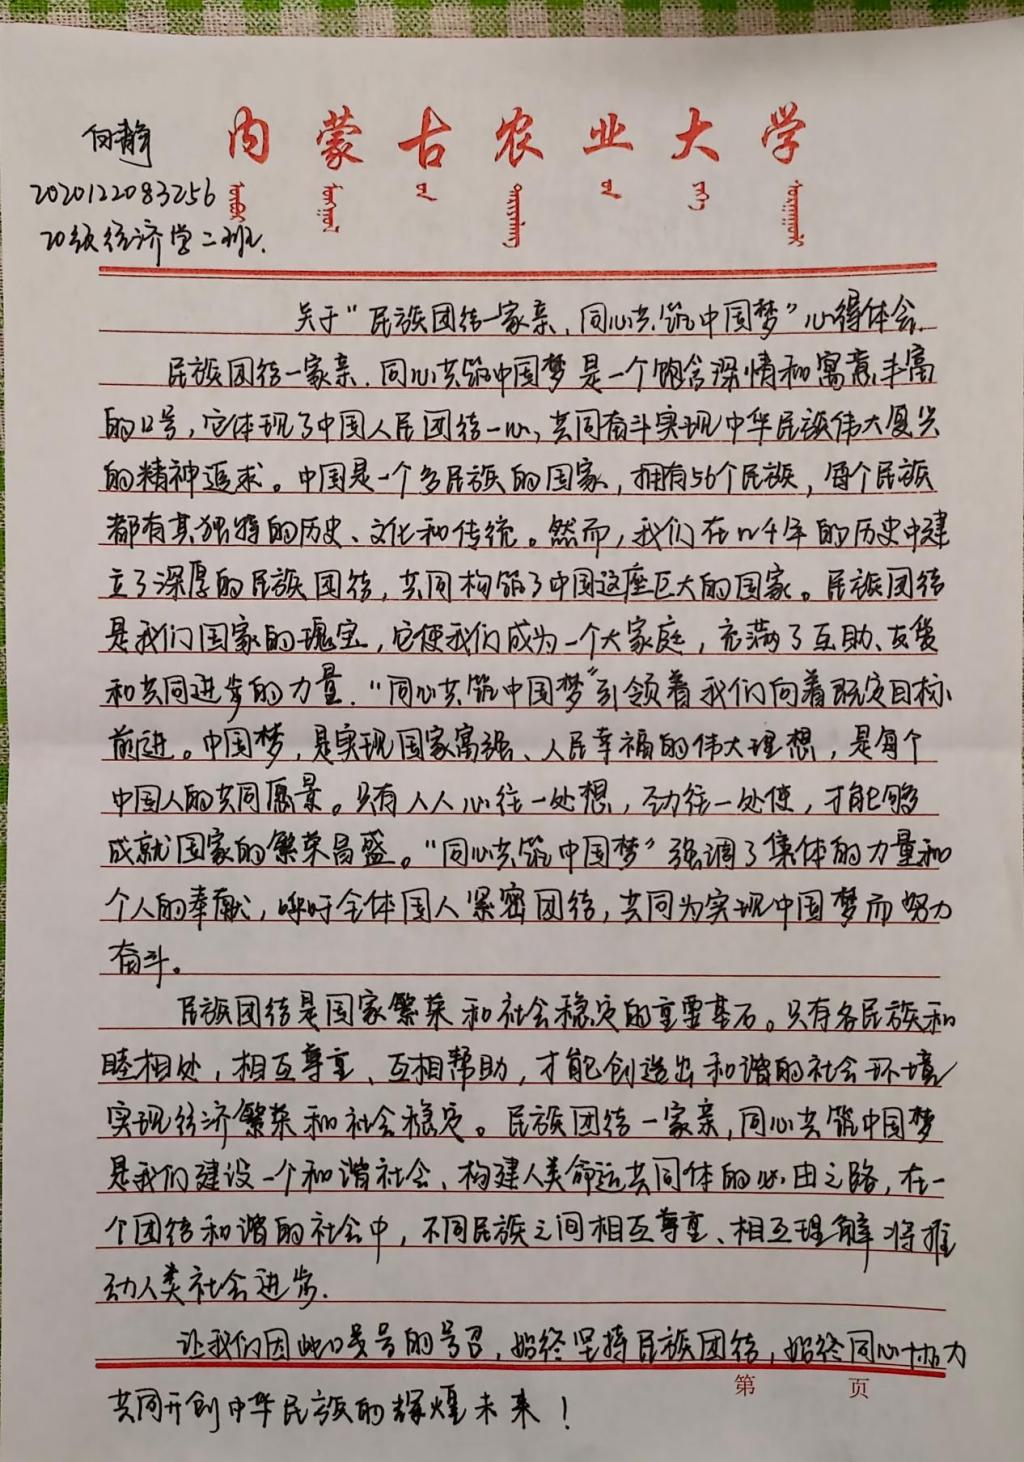 内蒙古农业大学
向静
2020122083256
20级经济学二班.
关于“民族团结一家亲,同心共筑中国梦”心得体会.
民族团结一家亲.同心共筑中国梦是一个饱含深情和寓意丰富
的口号,它体现了中国人民团结一心,共同奋斗实现中华民族伟大复兴
的精神追求。中国是一个多民族的国家,拥有56个民族,每个民族
都有其独特的历史、文化和传统。然而,我们在几千年的历史中建
立了深厚的民族团结,共同构筑了中国这座巨大的国家。民族团结
是我们国家的瑰宝,它使我们成为一个大家庭,充满了互助、友爱
和共同进步的力量.“同心共筑中国梦”引领着我们向着既定目标
前进。中国梦,是实现国家富强、人民幸福的伟大理想,是每个
中国人的共同愿景。只有人人心往一处想,劲往一处使,才能够
成就国家的繁荣昌盛。“同心共筑中国梦”强调了集体的力量和
个人的奉献,呼吁全体国人紧密团结,共同为实现中国梦而努力
奋斗。
民族团结是国家繁荣和社会稳定的重要基石。只有各民族和
睦相处,相互尊重、互相帮助,才能创造出和谐的社会环境
实现经济繁荣和社会稳定。民族团结一家亲,同心共筑中国梦
是我们建设一个和谐社会、构建人类命运共同体的必由之路,在一
个团结和谐的社会中,不同民族之间相互尊重、相互理解将推
动人类社会进步.
让我们因此口号的号召,始终坚持民族团结,始终同心协力
第 页
共同开创中华民族的辉煌未来!